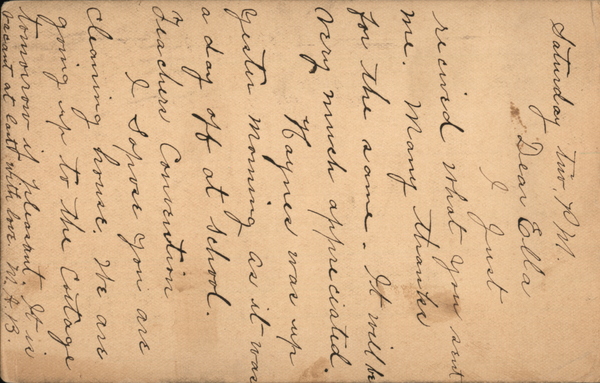 Saturday two, P.M.
Dear Ella
I Just
recievd what you sent
me. Many thanks
for the same. It will be
very much appreciated.
Haynes was up
yester morning as it was
a day off at school.
Teachers Convention
I Sopose you are
cleaning house. We are
going up to the Cottage
tomorrow if pleasant. It is
vacant at last with love. M. A. B.